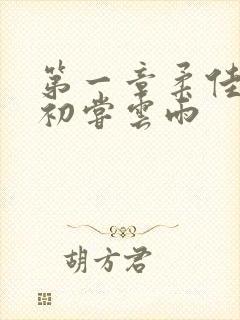 第一章柔佳
初尝雲雨
胡方君